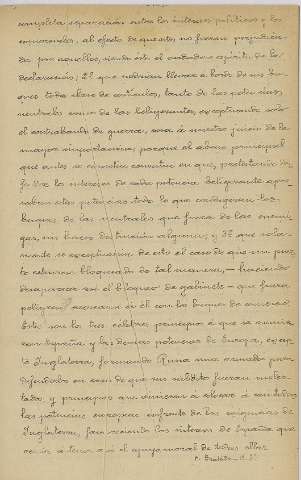 completa separación entre los intereses políticos y los
comerciales, al efecto de que estos no fueran perjudica-
dos por aquellos, siendo este el verdadero espíritu de la
declaración; 2º que podrían llevar a bordo de sus bu-
ques toda clase de artículos, tanto de las potencias
neutrales como de los beligerantes, exceptuando solo
el contrabando de guerra, era a nuestro juicio de la
mayor importancia porque el abuso principal
que antes se cometía consistía en que, pretextando
los intereses de cada potencia beligerante apre-
saban estas potencias todo lo que condujesen los
buques de los neutrales que fuera de las enemi-
gas, sin hacer distinción alguna; y 3º que sola-
mente se exceptuaría de esto el caso de que un puer-
to estuviera bloqueado de tal manera, - haciendo
desaparecer así el bloqueo de gabinete - que fuera
peligroso acercarse a él con los buques de comercio.
Estos son los tres célebres principios a que se unieron
con España y las demás potencias de Europa, excep-
to Inglaterra, formando Rusia una armada para
defenderlos en caso de que sus súbditos fueran moles-
tados, y principios que vinieron a
las potencias europeas enfrente de las exigencias de
Inglaterra, favoreciendo los intereses de España que
venía a tener así el apoyo moral de todas ellas.